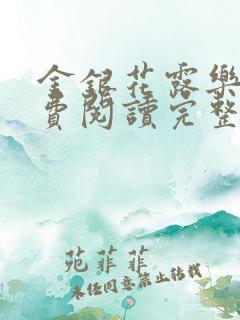 金銀花露樂
費閱讀完整
苑菲菲
未经同意禁止转载